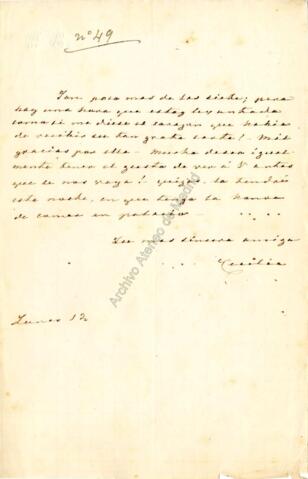 nº 49
Son poco mas de las siete, pero
hay una hora que estoy levantada
como si me diese el corazon que habia
de recibir su tan grata carta! Mil
gracias por ella - Mucho deseo igual-
mente tener el gusto de ver á V antes
que se nos vaya! quizás, lo tendré
esta noche, en que tengo la honra
de comer en palacio -
Su mas sincera amiga
Cecilia
Lunes 12
Archivo Ateneo de Madrid